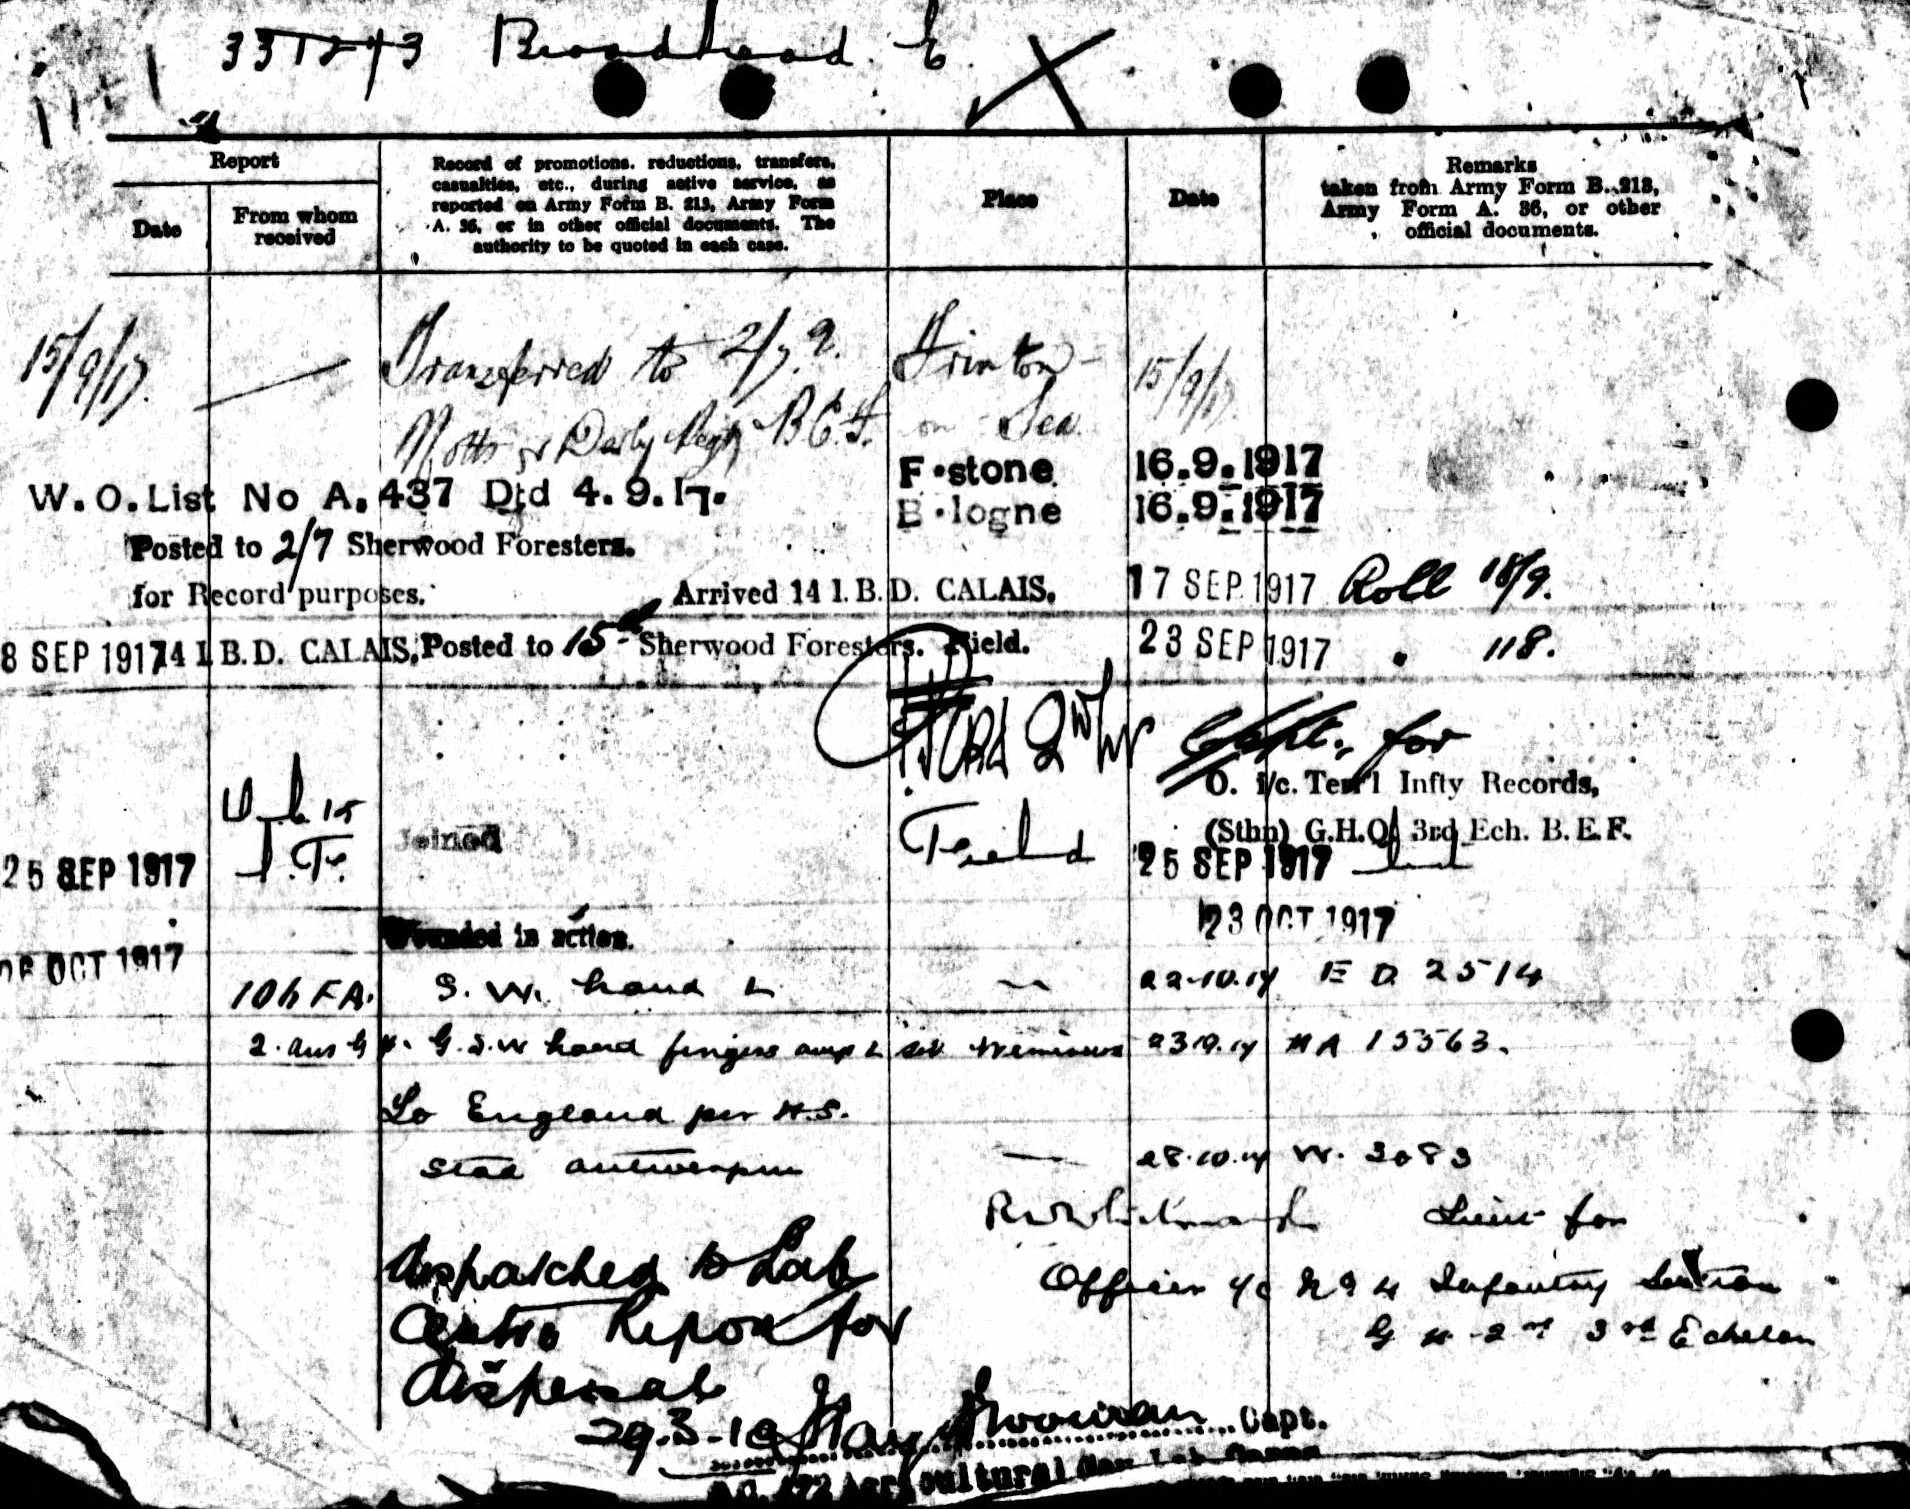 Broadhead E
Report
Date
From whom
received
Record of promotions, reductions, transfers,
casualties, etc., during active service, as
reported on Army Form B. 213, Army Form
A. 36, or in other official documents. The
authority to be quoted in each case.
Place
Date
Remarks
taken from Army Form B. 213,
Army Form A. 36, or other
official documents.
15/9/17. Transferred to 2/7 Frinton- 15/9/17
Notts & Derby Regt B.E.F. on Sea.
F.stone 16.9.1917
W.O. List No A. 437 Dtd 4.9.17.
B.logne 16.9.1917
Posted to 2/7 Sherwood Foresters.
for Record purposes. Arrived 14 I.B.D. CALAIS. 17 SEP 1917 Roll 18/9.
8 SEP 1917 14 I.B.D. CALAIS. Posted to 15th Sherwood Foresters. Field. 23 SEP 1917 . 118.
Capt., for
O. i/c. Terr'l Infty Records,
(Sthn) G.H.Q. 3rd Ech. B.E.F.
25 SEP 1917 Joined Field 25 SEP 1917
23 OCT 1917
Wounded in action.
OCT 1917
106 F.A. S. W. hand L 22.10.17 E D 2514
2. Aus G H. G.S.W hand fingers amp L 23.10.17 HA 15563.
To England per H.S.
Stad Antwerpen 28.10.17 W. 3083
Lieut for
Officer i/c No 4 Infantry Section
G H Q 3rd Echelon
Despatched to Lab
Centre Repon for
Dispersal
29.3.19 Capt.
Agricultural Lab